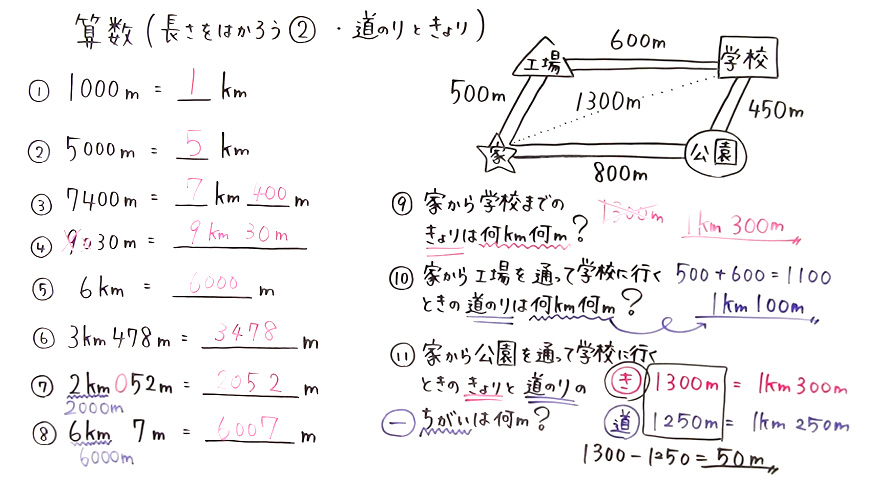 算数(長さをはかろう② ・道のりときょり)
① 1000m = 1 km
② 5000m = 5 km
③ 7400m = 7 km 400 m
④ 9030m = 9km 30m
⑤ 6km = 6000 m
⑥ 3km478m = 3478 m
⑦ 2km052m = 2052 m
2000m
⑧ 6km 7m = 6007 m
6000m
600m
工場
学校
500m
1300m
450m
家
公園
800m
⑨ 家から学校までの
きょりは何km何m?
1300m
1km 300m
⑩ 家から工場を通って学校に行く
ときの道のりは何km何m?
500+600=1100
1km100m
⑪ 家から公園を通って学校に行く
ときのきょりと道のりの
ちがいは何m?
き 1300m = 1km300m
道 1250m = 1km250m
−
1300−1250=50m